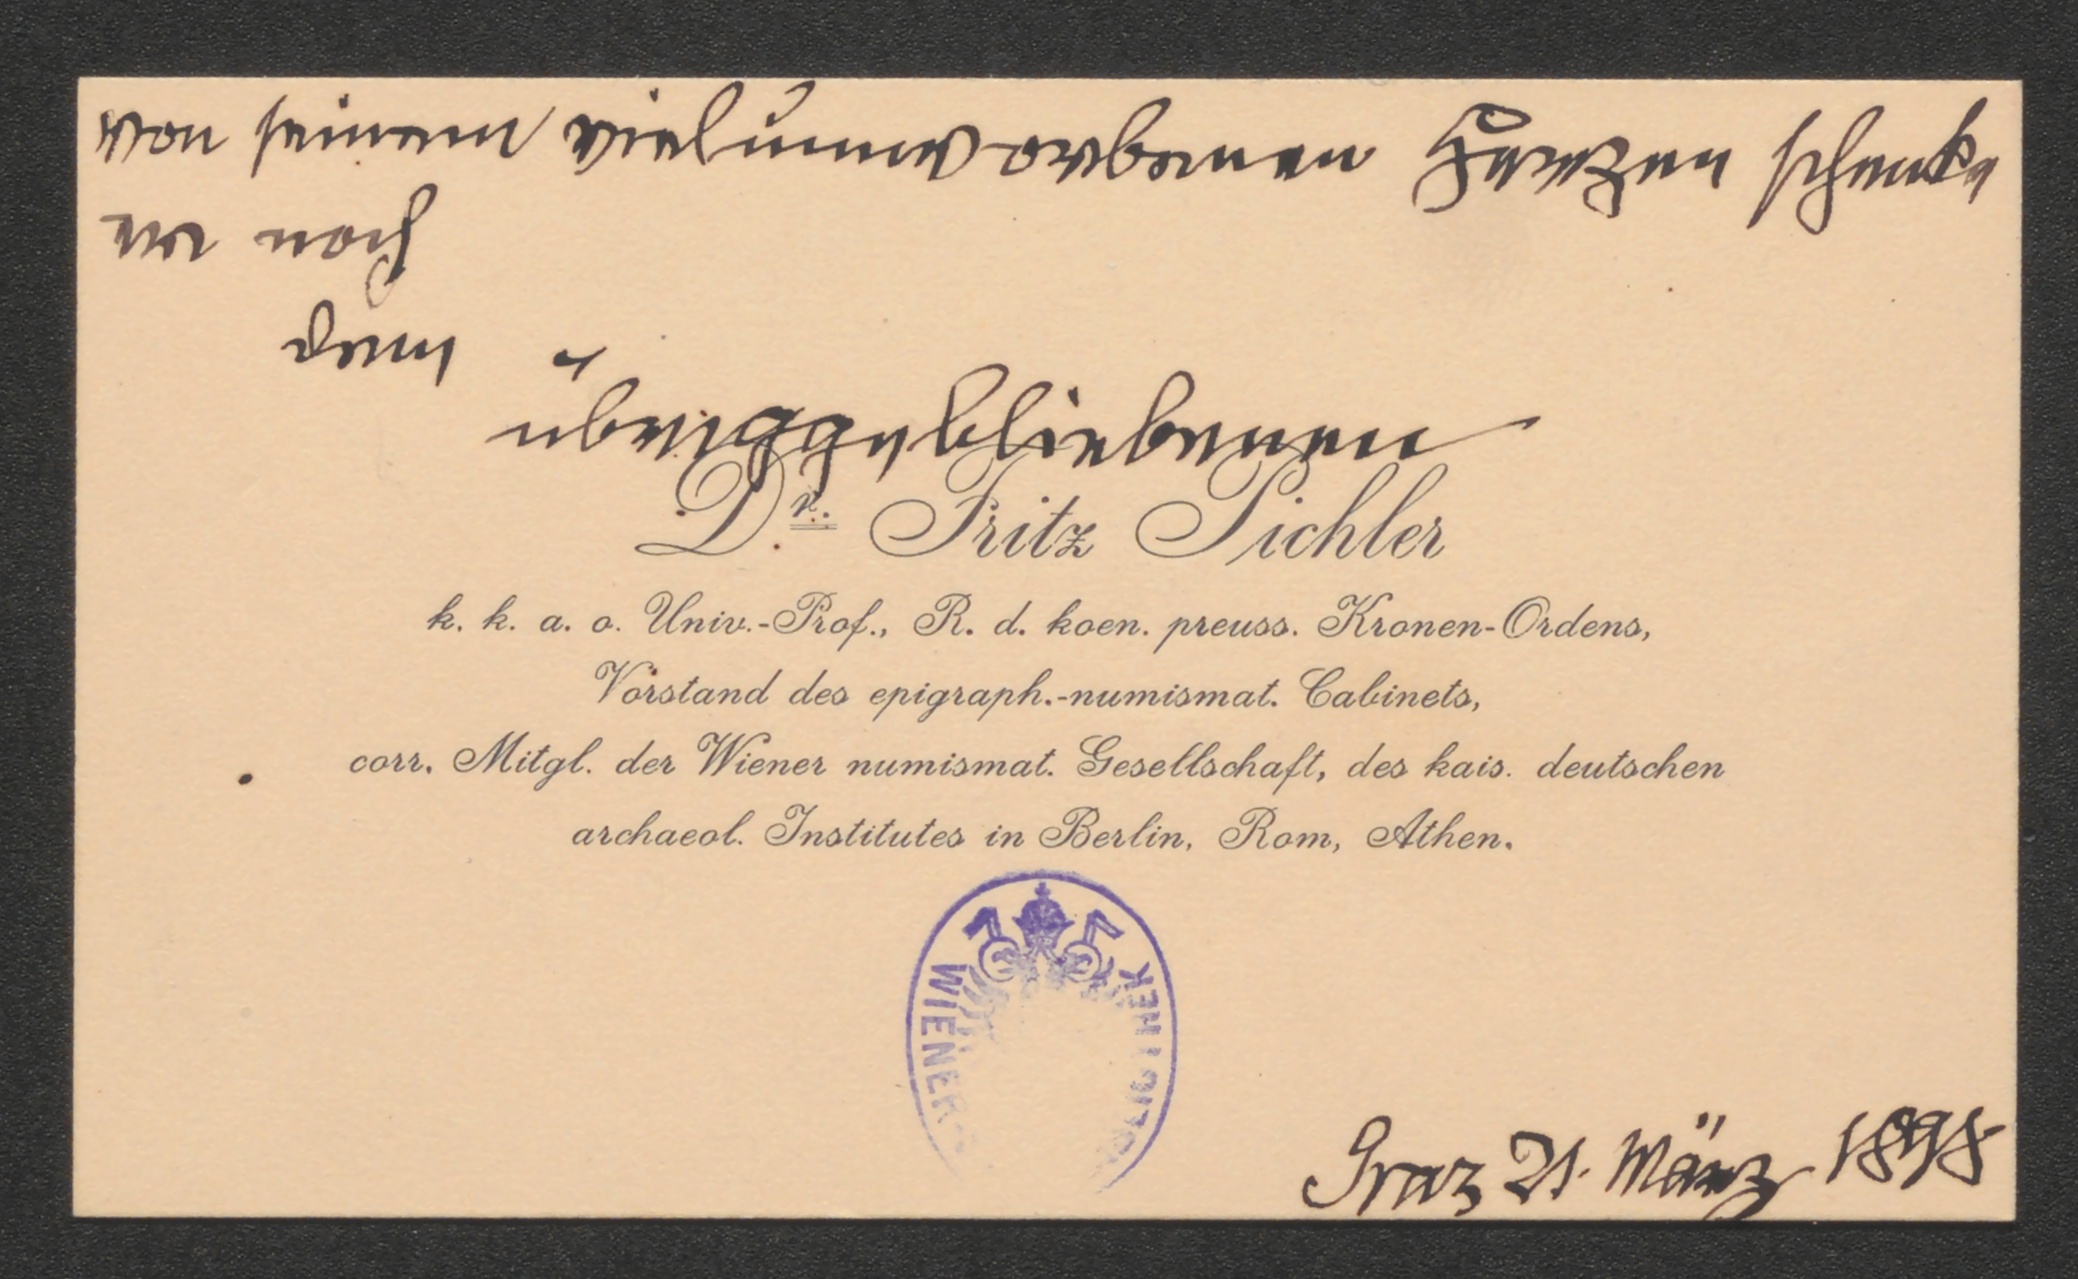 von seinem vielumworbenen Herzen schenke
er noch
dem
übriggebliebenen
Dr. Fritz Pichler
k. k. a. o. Univ.-Prof., R. d. koen. preuss. Kronen-Ordens,
Vorstand des epigraph.-numismat. Cabinets,
corr. Mitgl. der Wiener numismat. Gesellschaft, des kais. deutschen
archaeol. Institutes in Berlin, Rom, Athen.
WIENER
Graz 21. März 1898